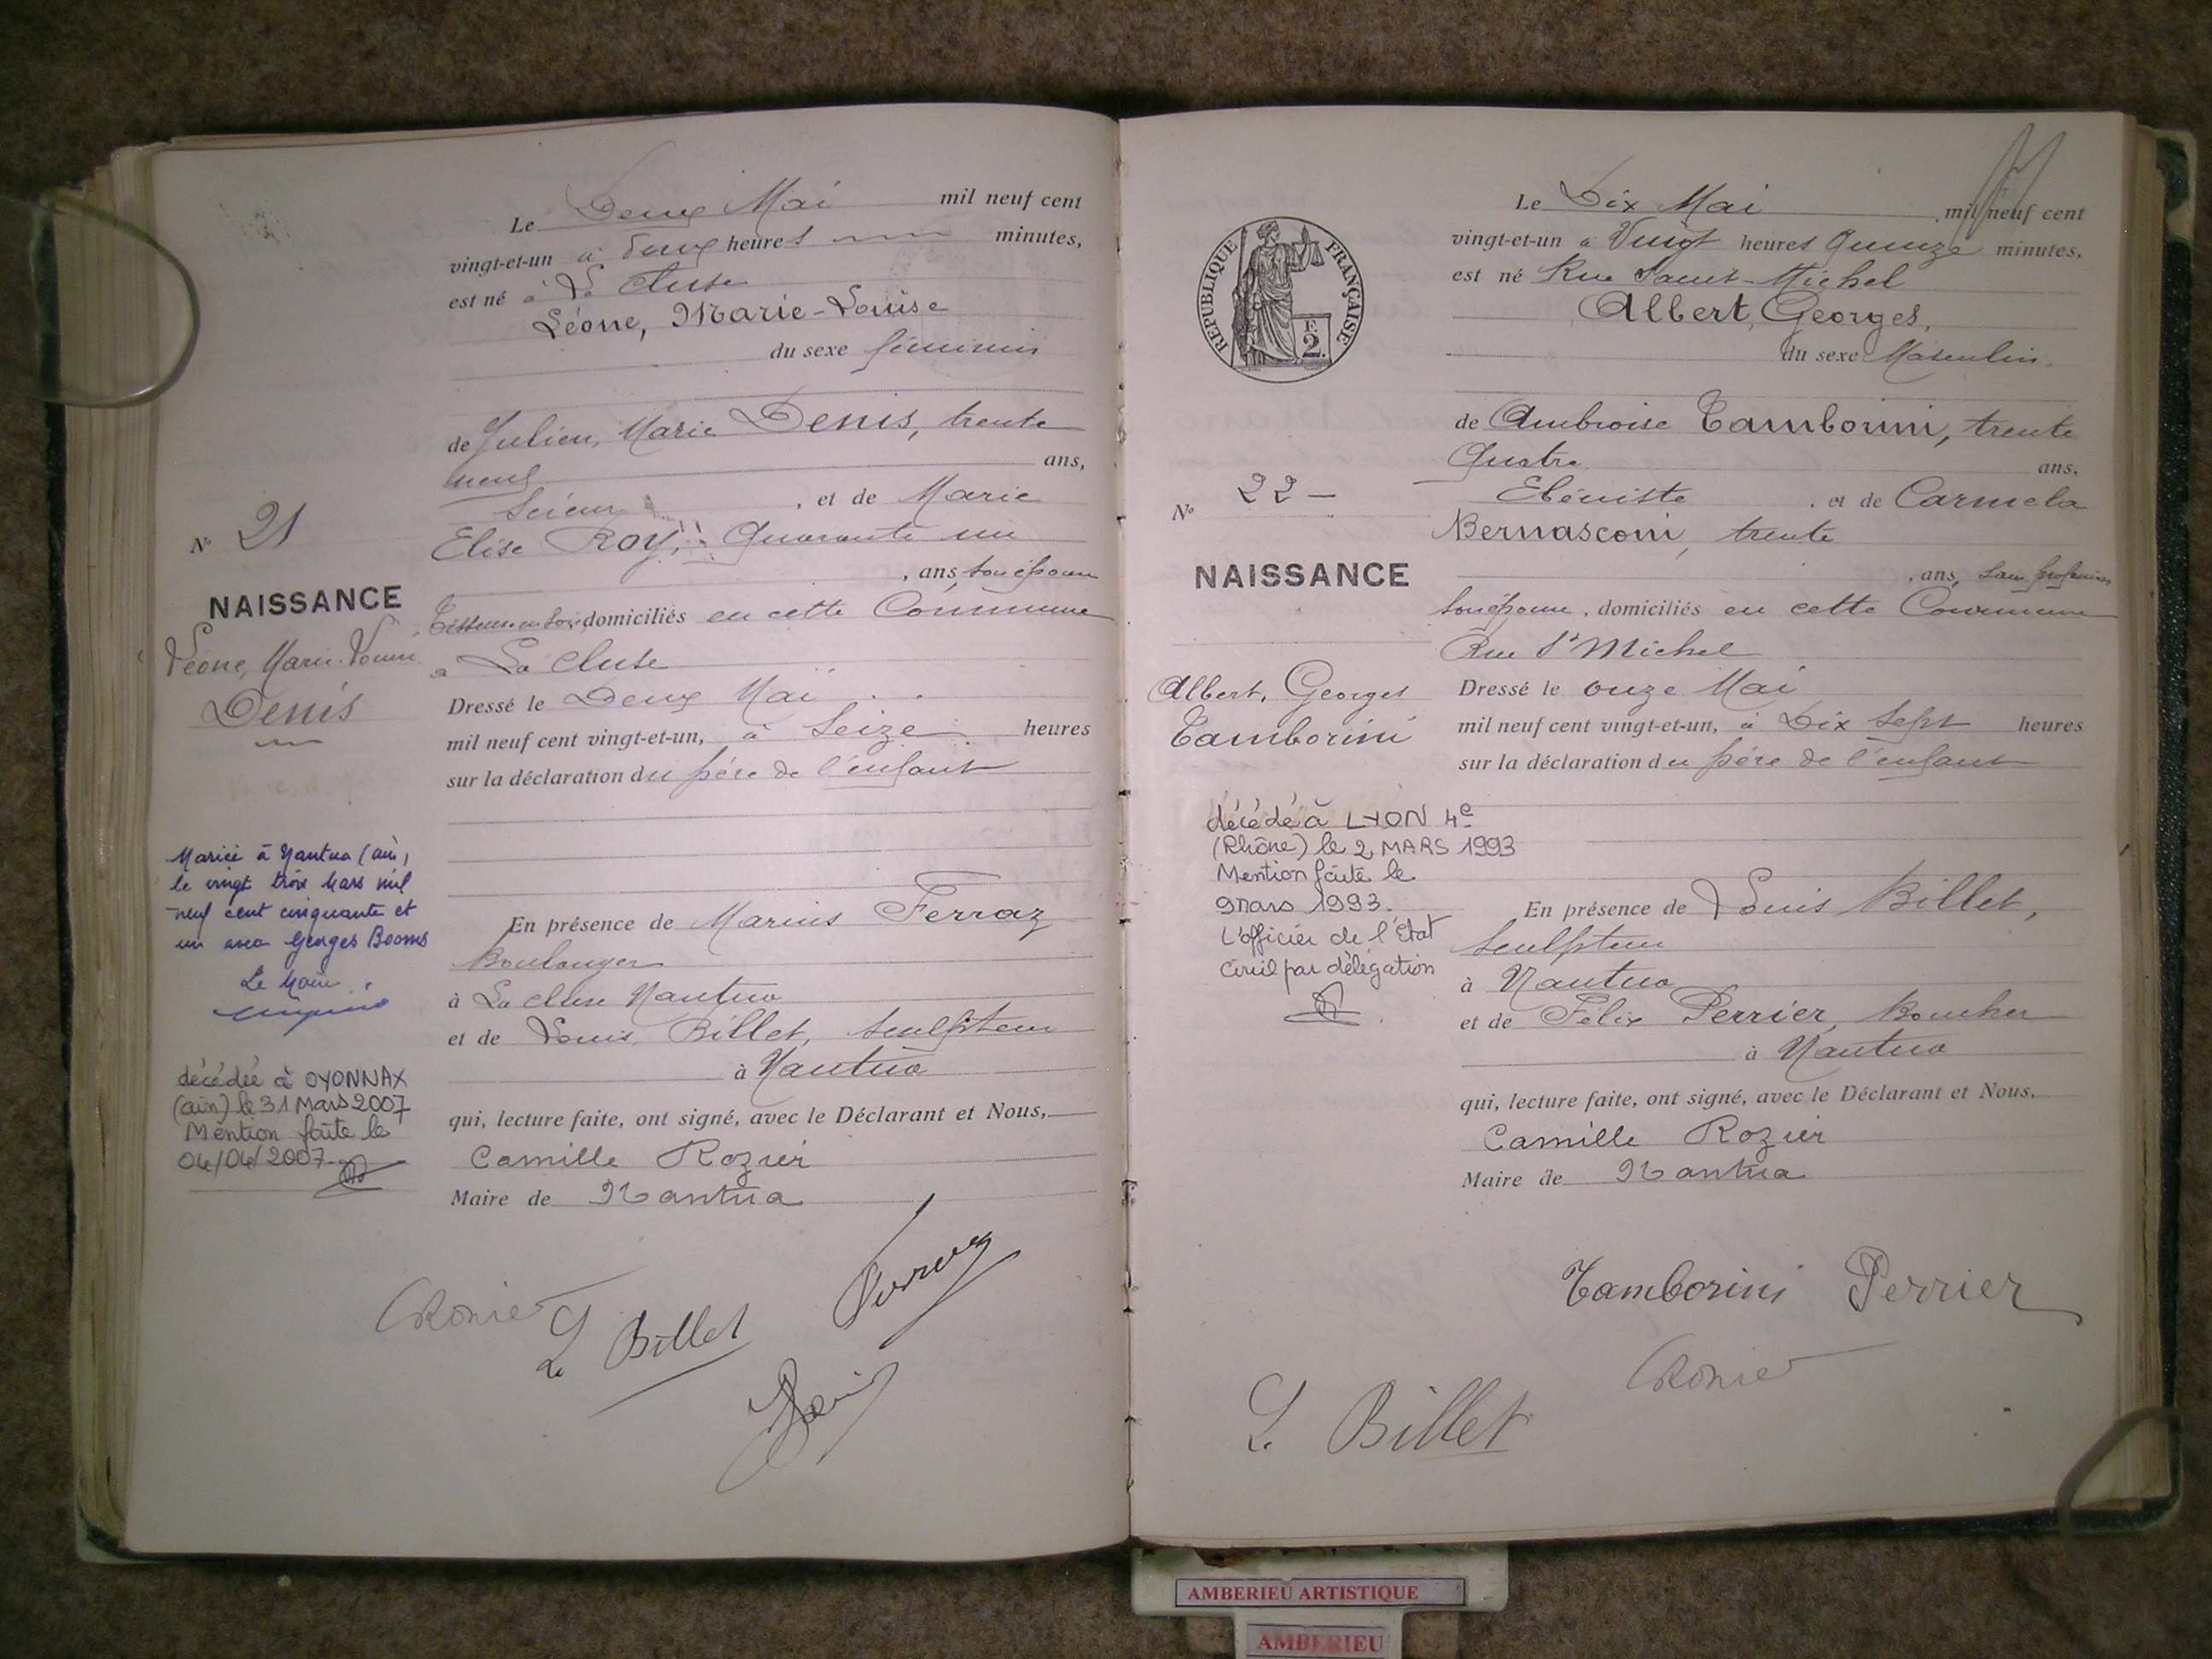 Le Deux Mai mil neuf cent
vingt-et-un à deux heures minutes,
est né à La Cluse
Léone, Marie-Louise
du sexe féminin
de Julien, Marie Denis, trente
neuf ans,
Scieur, et de Marie
Elise Roy, Quarante un
, ans, son épouse
Tisseuse en soie, domiciliés en cette Commune
à La Cluse
Dressé le Deux Mai
mil neuf cent vingt-et-un, à Seize heures
sur la déclaration du père de l'enfant
En présence de Marius Ferraz
Boulanger
à La cluse Nantua
et de Louis Billet, sculpteur
à Nantua
qui, lecture faite, ont signé, avec le Déclarant et Nous,
Camille Rozier
Maire de Nantua
L Billet
N° 21
NAISSANCE
Léone, Marie-Louise
Denis
Mariée à Nantua (ain)
le vingt trois Mars mil
neuf cent cinquante et
un avec Georges Booms
Le Maire
décédée à OYONNAX
(ain) le 31 Mars 2007
Mention faite le
04/04/2007
REPUBLIQUE FRANÇAISE
F.
2.
Le Dix Mai mil neuf cent
vingt-et-un à Vingt heures Quinze minutes,
est né Rue Saint-Michel
Albert, Georges,
du sexe Masculin.
de Ambroise Tamborini, trente
Quatre ans,
Ebéniste, et de Carmela
Bernasconi, trente
, ans, sans profession
son épouse, domiciliés en cette Commune
Rue St Michel
Dressé le onze Mai
mil neuf cent vingt-et-un, à Dix sept heures
sur la déclaration du père de l'enfant
En présence de Louis Billet,
sculpteur
à Nantua
et de Félix Perrier, Boucher
à Nantua
qui, lecture faite, ont signé, avec le Déclarant et Nous,
Camille Rozier
Maire de Nantua
Tamborini Perrier
L. Billet
N° 22
NAISSANCE
Albert, Georges
Tamborini
décédé à LYON 4e
(Rhône) le 2 MARS 1993
Mention faite le
9 mars 1993.
L'officier de l'Etat
Civil par délégation
AMBERIEU ARTISTIQUE
AMBERIEU